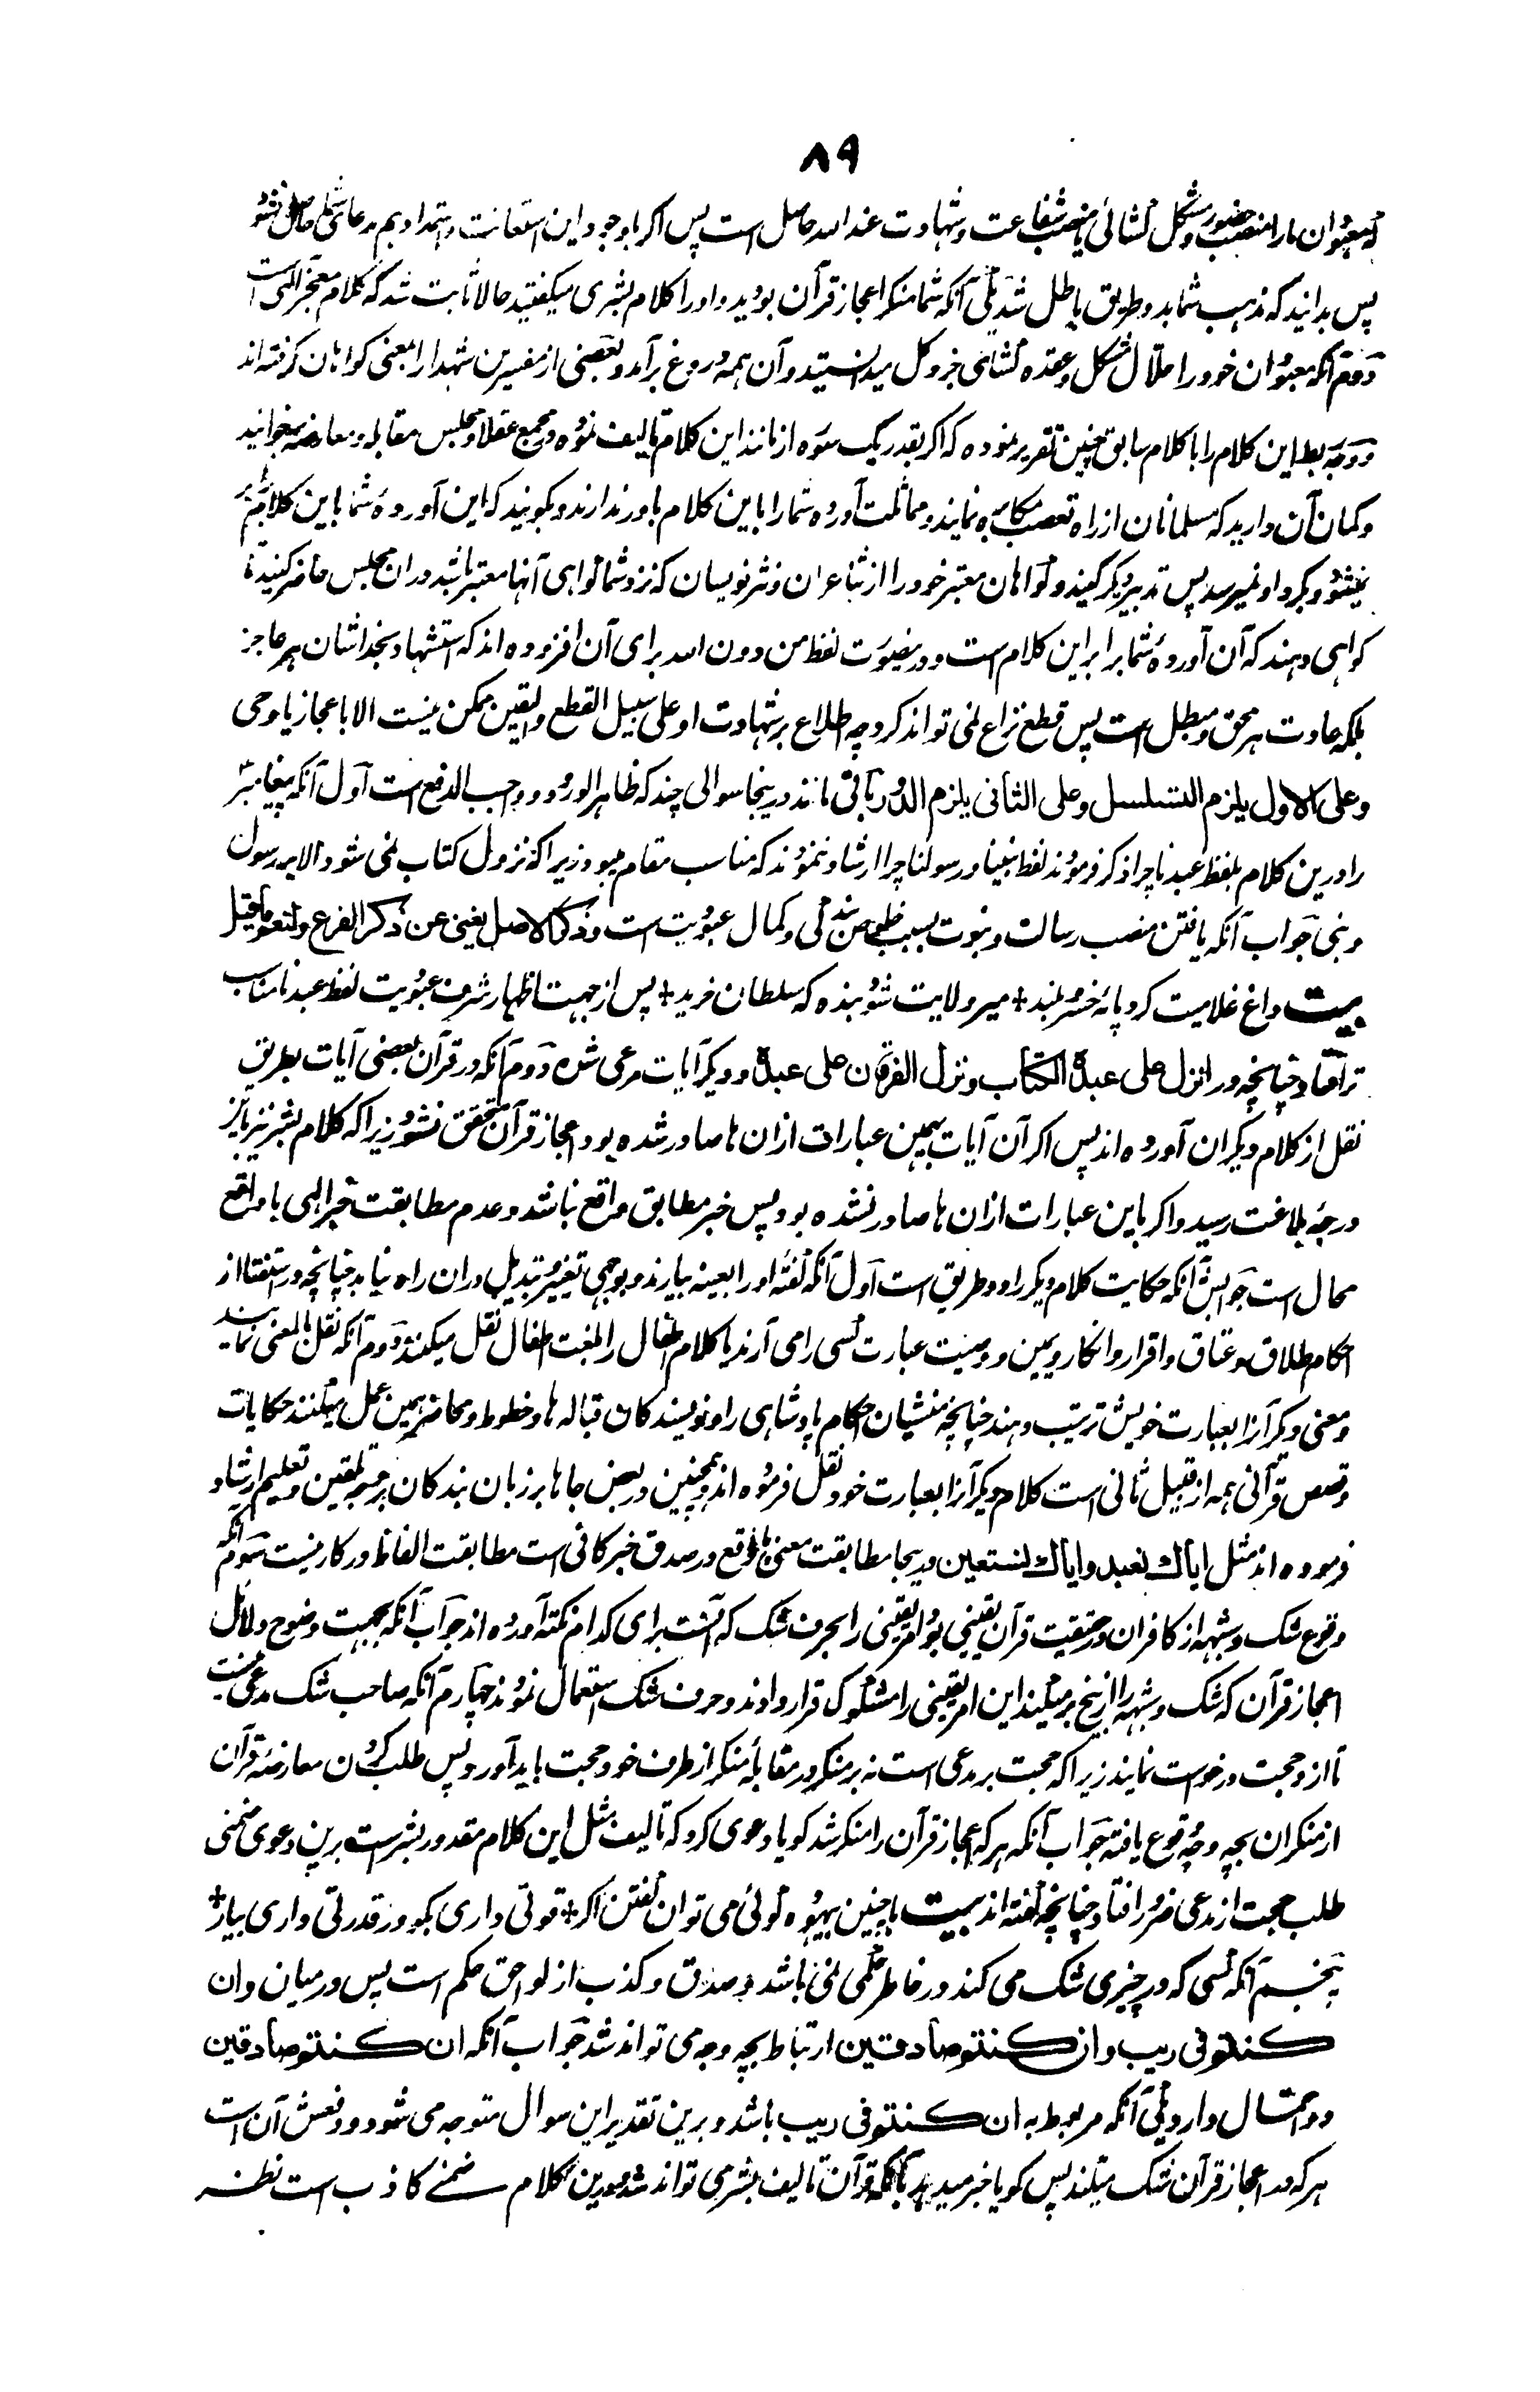 ۸۹
که معبودان ما را منصب حضور و مشکل کشائی یا منصب شفاعت و شهادت عند الله حاصل است پس اکر باوجود این استعانت و استمداد هم مدعای شما حاصل نشود
پس بدانید که مذهب شما بد و طریق باطل شد یکی آنکه شما منکر اعجاز قرآن بودید و او را کلام بشری میکفتید حالا ثابت شد که کلام معجز الهی است
دوم آنکه معبودان خود را حلال مشکل و عقده کشای جز و کل میدانستید و آن همه دروغ برآمد و بعضی از مفسرین شهدا را بمعنی کواهان کرفته اند
و وجه ربط این کلام را با کلام سابق چنین تقریر نموده که اکر بقدر یک سوره از مانند این کلام تالیف نموده در مجمع عقلا و مجلس مقابله و معارضه بخوانید
و کمان آن دارید که مسلمانان از راه تعصب مکابره نمایند و مماثلت آورده شما را باین کلام باور ندارند و بکویند که این آورده شما باین کلام برابر
نمیشود و بکرد او نمیرسد پس تدبیر دیکر کنید و کواهان معتبر خود را از شاعران و نثر نویسان که نزد شما کواهی آنها معتبر باشد دران مجلس حاضر کنید تا
کواهی دهند که آن آورده شما برابر این کلام است و درینصورت لفظ من دون الله برای آن افزوده اند که استشهاد بخدا شان هر عاجز
بلکه عادت هر محق و مبطل است پس قطع نزاع نمی تواند کرد و چه اطلاع بر شهادت او علی سبیل القطع والیقین ممکن نیست الا باعجاز یا وحی
و علی الاول یلزم التسلسل و علی الثانی یلزم الدور باقی ماند درینجا سوالی چند که ظاهر الورود و واجب الدفع است اول آنکه پیغامبر
را درین کلام بلفظ عبدنا چرا ذکر فرمودند لفظ نبینا و رسولنا چرا ارشاد ننمودند که مناسب مقام میبود زیرا که نزول کتاب نمی شود الا بر رسول
و نبی جواب آنکه یافتن منصب رسالت و نبوت بسبب خلوص بندکی و کمال عبودیت است و ذکر الاصل یغنی عن ذکر الفرع و لنعم ما قیل
بیت داغ غلامیت کرد پایه خسرو بلند + میر ولایت شود بنده که سلطان خرید + پس از جهت اظهار شرف عبودیت لفظ عبدنا مناسب
تر افتاد چنانچه در انزل علی عبده الکتاب و نزل الفرقان علی عبده و دیکر آیات مرعی شده دوم آنکه در قرآن بعضی آیات بطریق
نقل از کلام دیکران آورده اند پس اکر آن آیات بهمین عبارات ازان ها صادر شده بود اعجاز قرآن متحقق نشود زیرا که کلام بشر نیز باین
درجه بلاغت رسید و اکر باین عبارات ازان ها صادر نشده بود پس خبر مطابق واقع نباشد و عدم مطابقت خبر الهی با واقع
محال است جوابش آنکه حکایت کلام دیکر را دو طریق است اول آنکه کفته او را بعینه بیارند و بوجهی تغییر و تبدیل دران راه نیابد چنانچه در استفتا از
احکام طلاق و عتاق و اقرار و انکار و یمین و وصیت عبارت کسی را می آرند یا کلام اطفال را بلغت اطفال نقل میکنند دوم آنکه نقل بالمعنی نمایند
و معنی دیکر آنرا بعبارت خویش ترتیب دهند چنانچه منشیان احکام پادشاهی را و نویسندکان قباله ها و خطوط و محاضر همین عمل میکنند حکایات
و قصص قرآنی همه از قبیل ثانی است کلام دیکر آنرا بعبارت خود نقل فرموده اند و همچنین در بعض جاها بر زبان بندکان بر سبیل تلقین و تعلیم ارشاد
فرموده اند مثل ایاک نعبد و ایاک نستعین درینجا مطابقت معنی با واقع در صدق خبر کافی است مطابقت الفاظ در کار نیست سوم آنکه
وقوع شک و شبهه از کافران در حقیقت قرآن یقینی بود امر یقینی را بحرف شک که آنست برای کدام نکته آورده اند جواب آنکه بجهت وضوح دلائل
اعجاز قرآن که شک و شبهه را از بیخ برمیکند این امر یقینی را مشکوک قرار دادند و حرف شک استعمال نمودند چهارم آنکه صاحب شک مدعی نیست
تا ازو حجت درخواست نمایند زیرا که حجت بر مدعی است نه بر منکر و در مقابله منکر از طرف خود حجت باید آورد پس طلب کردن معارضه قرآن
از منکران بچه وجه وقوع یافته جواب آنکه هر که اعجاز قرآن را منکر شد کویا دعوی کرد که تالیف مثل این کلام مقدور بشر است برین دعوی ضمنی
طلب حجت از مدعی ضرور افتاد چنانچه کفته اند بیت با چنین بیهوده کوئی می توان کفتن اکر + قوتی داری بکو ور قدرتی داری بیار +
پنجم آنکه کسی که در چیزی شک می کند در خاطر حکمی نمی باشد و صدق و کذب از لواحق حکم است پس در میان و ان
کنتم فی ریب و ان کنتم صادقین ارتباط بچه وجه می تواند شد جواب آنکه ان کنتم صادقین
دو احتمال دارد یکی آنکه مربوط به ان کنتم فی ریب باشد و برین تقدیر این سوال متوجه می شود و دفعش آن است
هر که در اعجاز قرآن شک میکند پس کویا خبر میدهد بآنکه قرآن تالیف بشر می تواند شد و درین کلام ضمنی کاذب است نظر